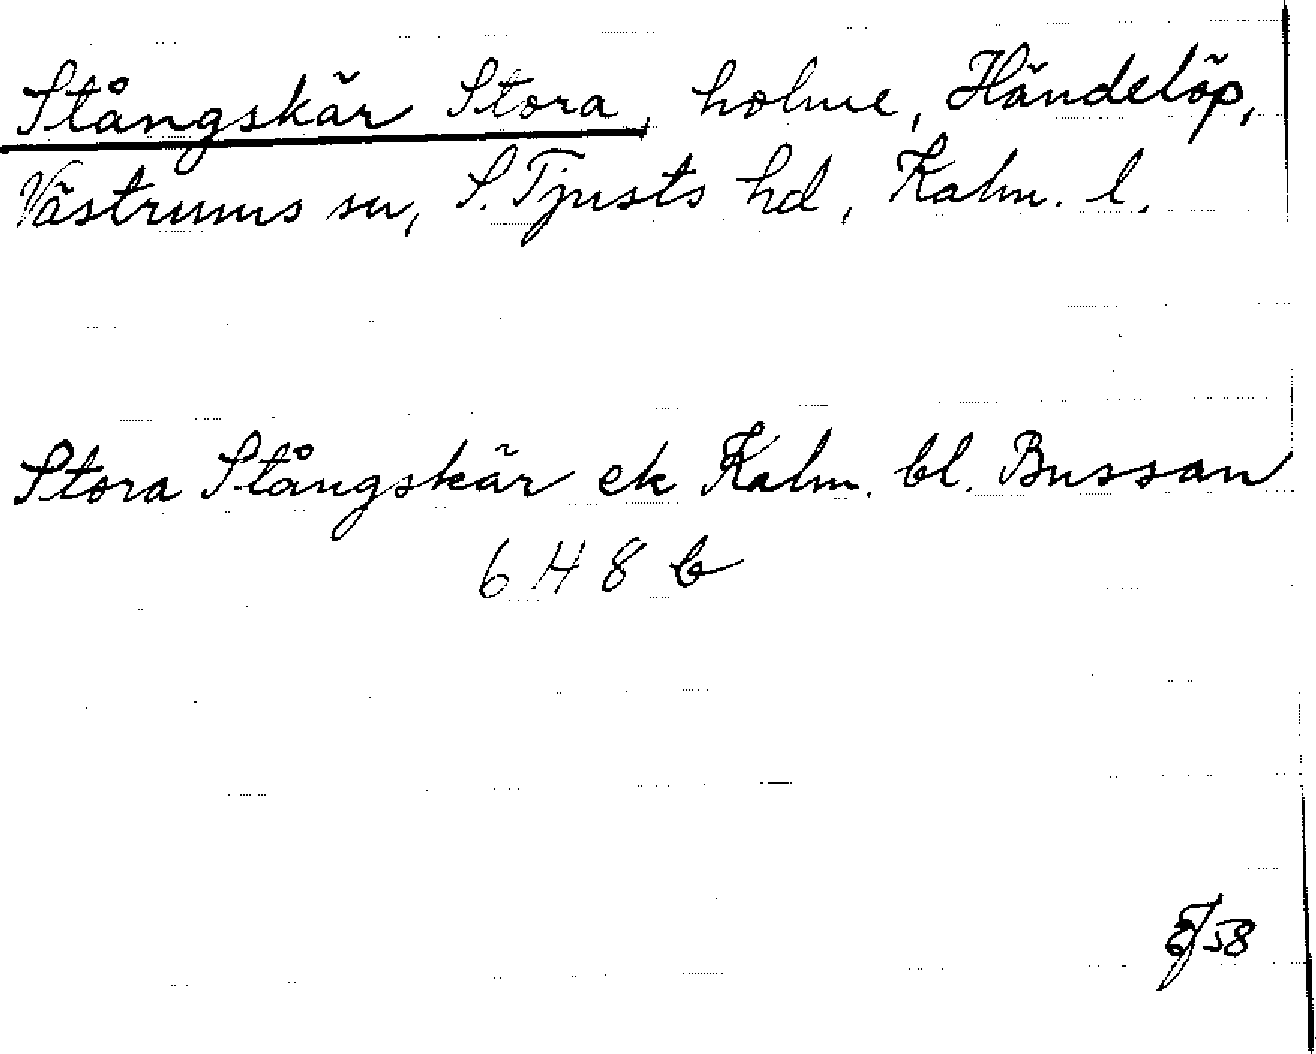 Stångskär Stora, holme, Händelöp,
Västrums sn, S. Tjusts hd, Kalm. l.
Stora Stångskär ek Kalm. bl. Bussan
6 H 8 b
58